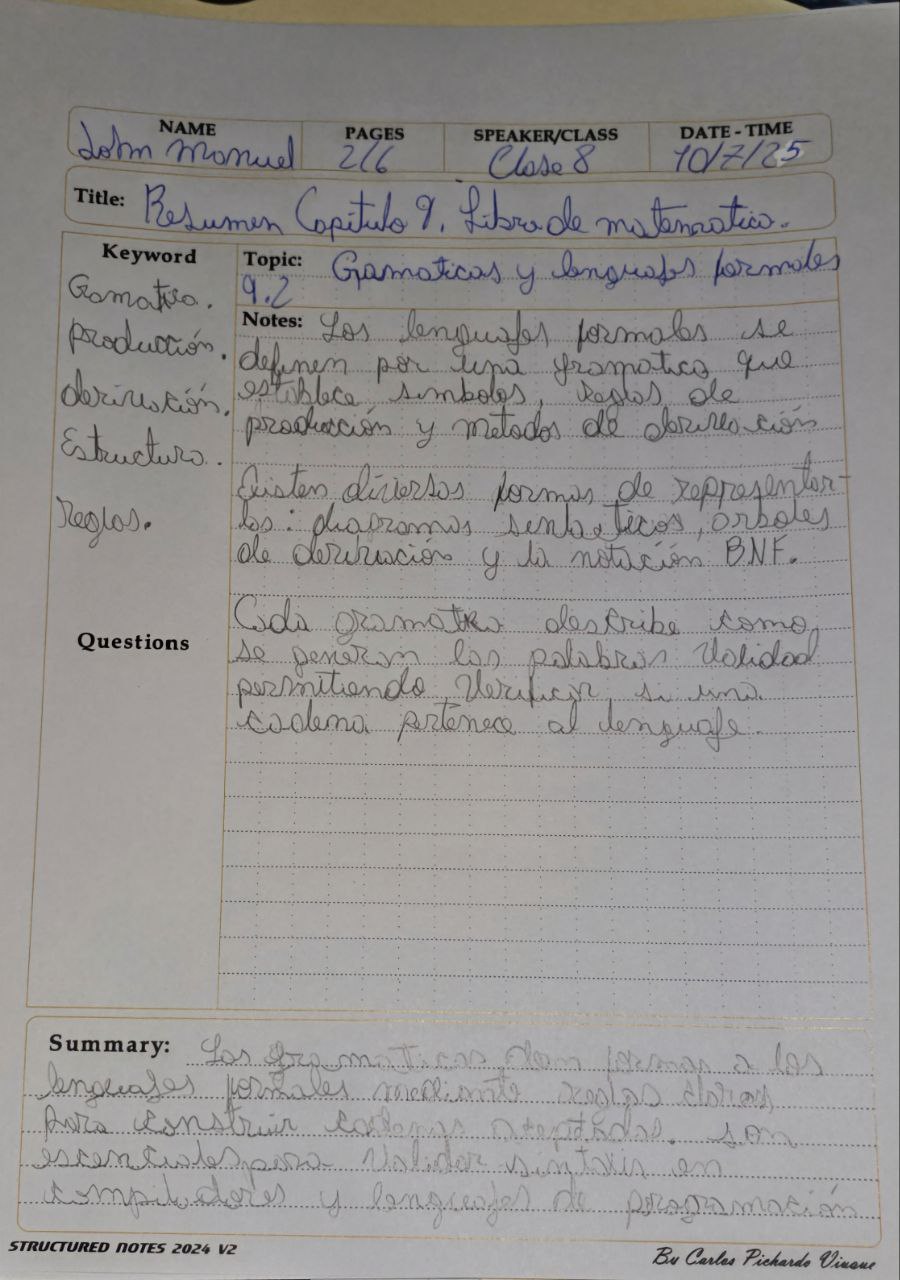 NAME PAGES SPEAKER/CLASS DATE - TIME
John Manuel 2/6 Clase 8 10/7/25
Title: Resumen Capitulo 9. Libro de matematica.
Keyword
Gramatica.
producción.
derivación.
Estructura.
Reglas.
Questions
Topic: Gramaticas y lenguajes formales
9.2
Notes: Los lenguajes formales se
definen por una gramatica que
establece simbolos, reglas de
producción y metodos de derivación
Existen diversas formas de representar-
los: diagramas sintacticos, arboles
de derivación y la notación BNF.
Cada gramatica describe como
se generan las palabras validad
permitiendo verificar si una
cadena pertenece al lenguaje.
Summary: Las gramaticas dan formas a los
lenguajes formales mediante reglas claras
para construir cadenas aceptadas. son
escenciales para validar sintaxis en
compiladores y lenguajes de programación
STRUCTURED NOTES 2024 V2
By Carlos Pichardo Viuque